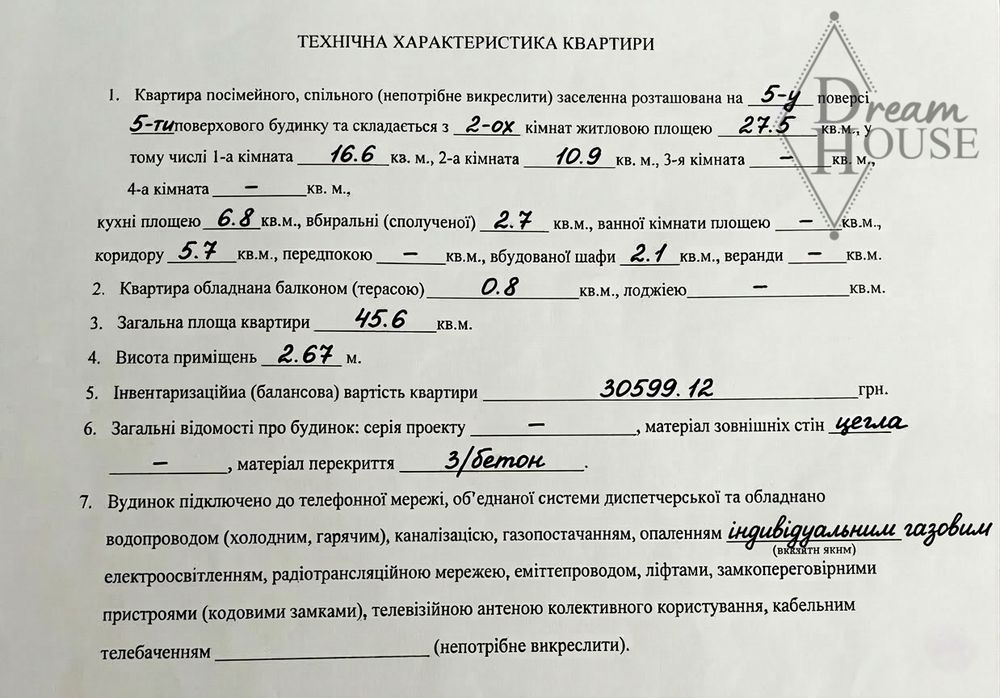 ТЕХНІЧНА ХАРАКТЕРИСТИКА КВАРТИРИ
Dream
HOUSE
1. Квартира посімейного, спільного (непотрібне викреслити) заселенна розташована на 5-у поверсі
5-ти поверхового будинку та складається з 2-ох кімнат житловою площею 27.5 кв.м., у
тому числі 1-а кімната 16.6 кв. м., 2-а кімната 10.9 кв. м., 3-я кімната – кв. м.,
4-а кімната – кв. м.,
кухні площею 6.8 кв.м., вбиральні (сполученої) 2.7 кв.м., ванної кімнати площею – кв.м.,
коридору 5.7 кв.м., передпокою – кв.м., вбудованої шафи 2.1 кв.м., веранди – кв.м.
2. Квартира обладнана балконом (терасою) 0.8 кв.м., лоджіею – кв.м.
3. Загальна площа квартири 45.6 кв.м.
4. Висота приміщень 2.67 м.
5. Інвентаризаційна (балансова) вартість квартири 30599.12 грн.
6. Загальні відомості про будинок: серія проекту –, матеріал зовнішніх стін цегла
–, матеріал перекриття З/бетон.
7. Вудинок підключено до телефонної мережі, об’єднаної системи диспетчерської та обладнано
водопроводом (холодним, гарячим), каналізацією, газопостачанням, опаленням індивідуальним газовим
(вкклятн якнм)
електроосвітленням, радіотрансляційною мережею, еміттепроводом, ліфтами, замкопереговірними
пристроями (кодовими замками), телевізійною антеною колективного користування, кабельним
телебаченням (непотрібне викреслити).